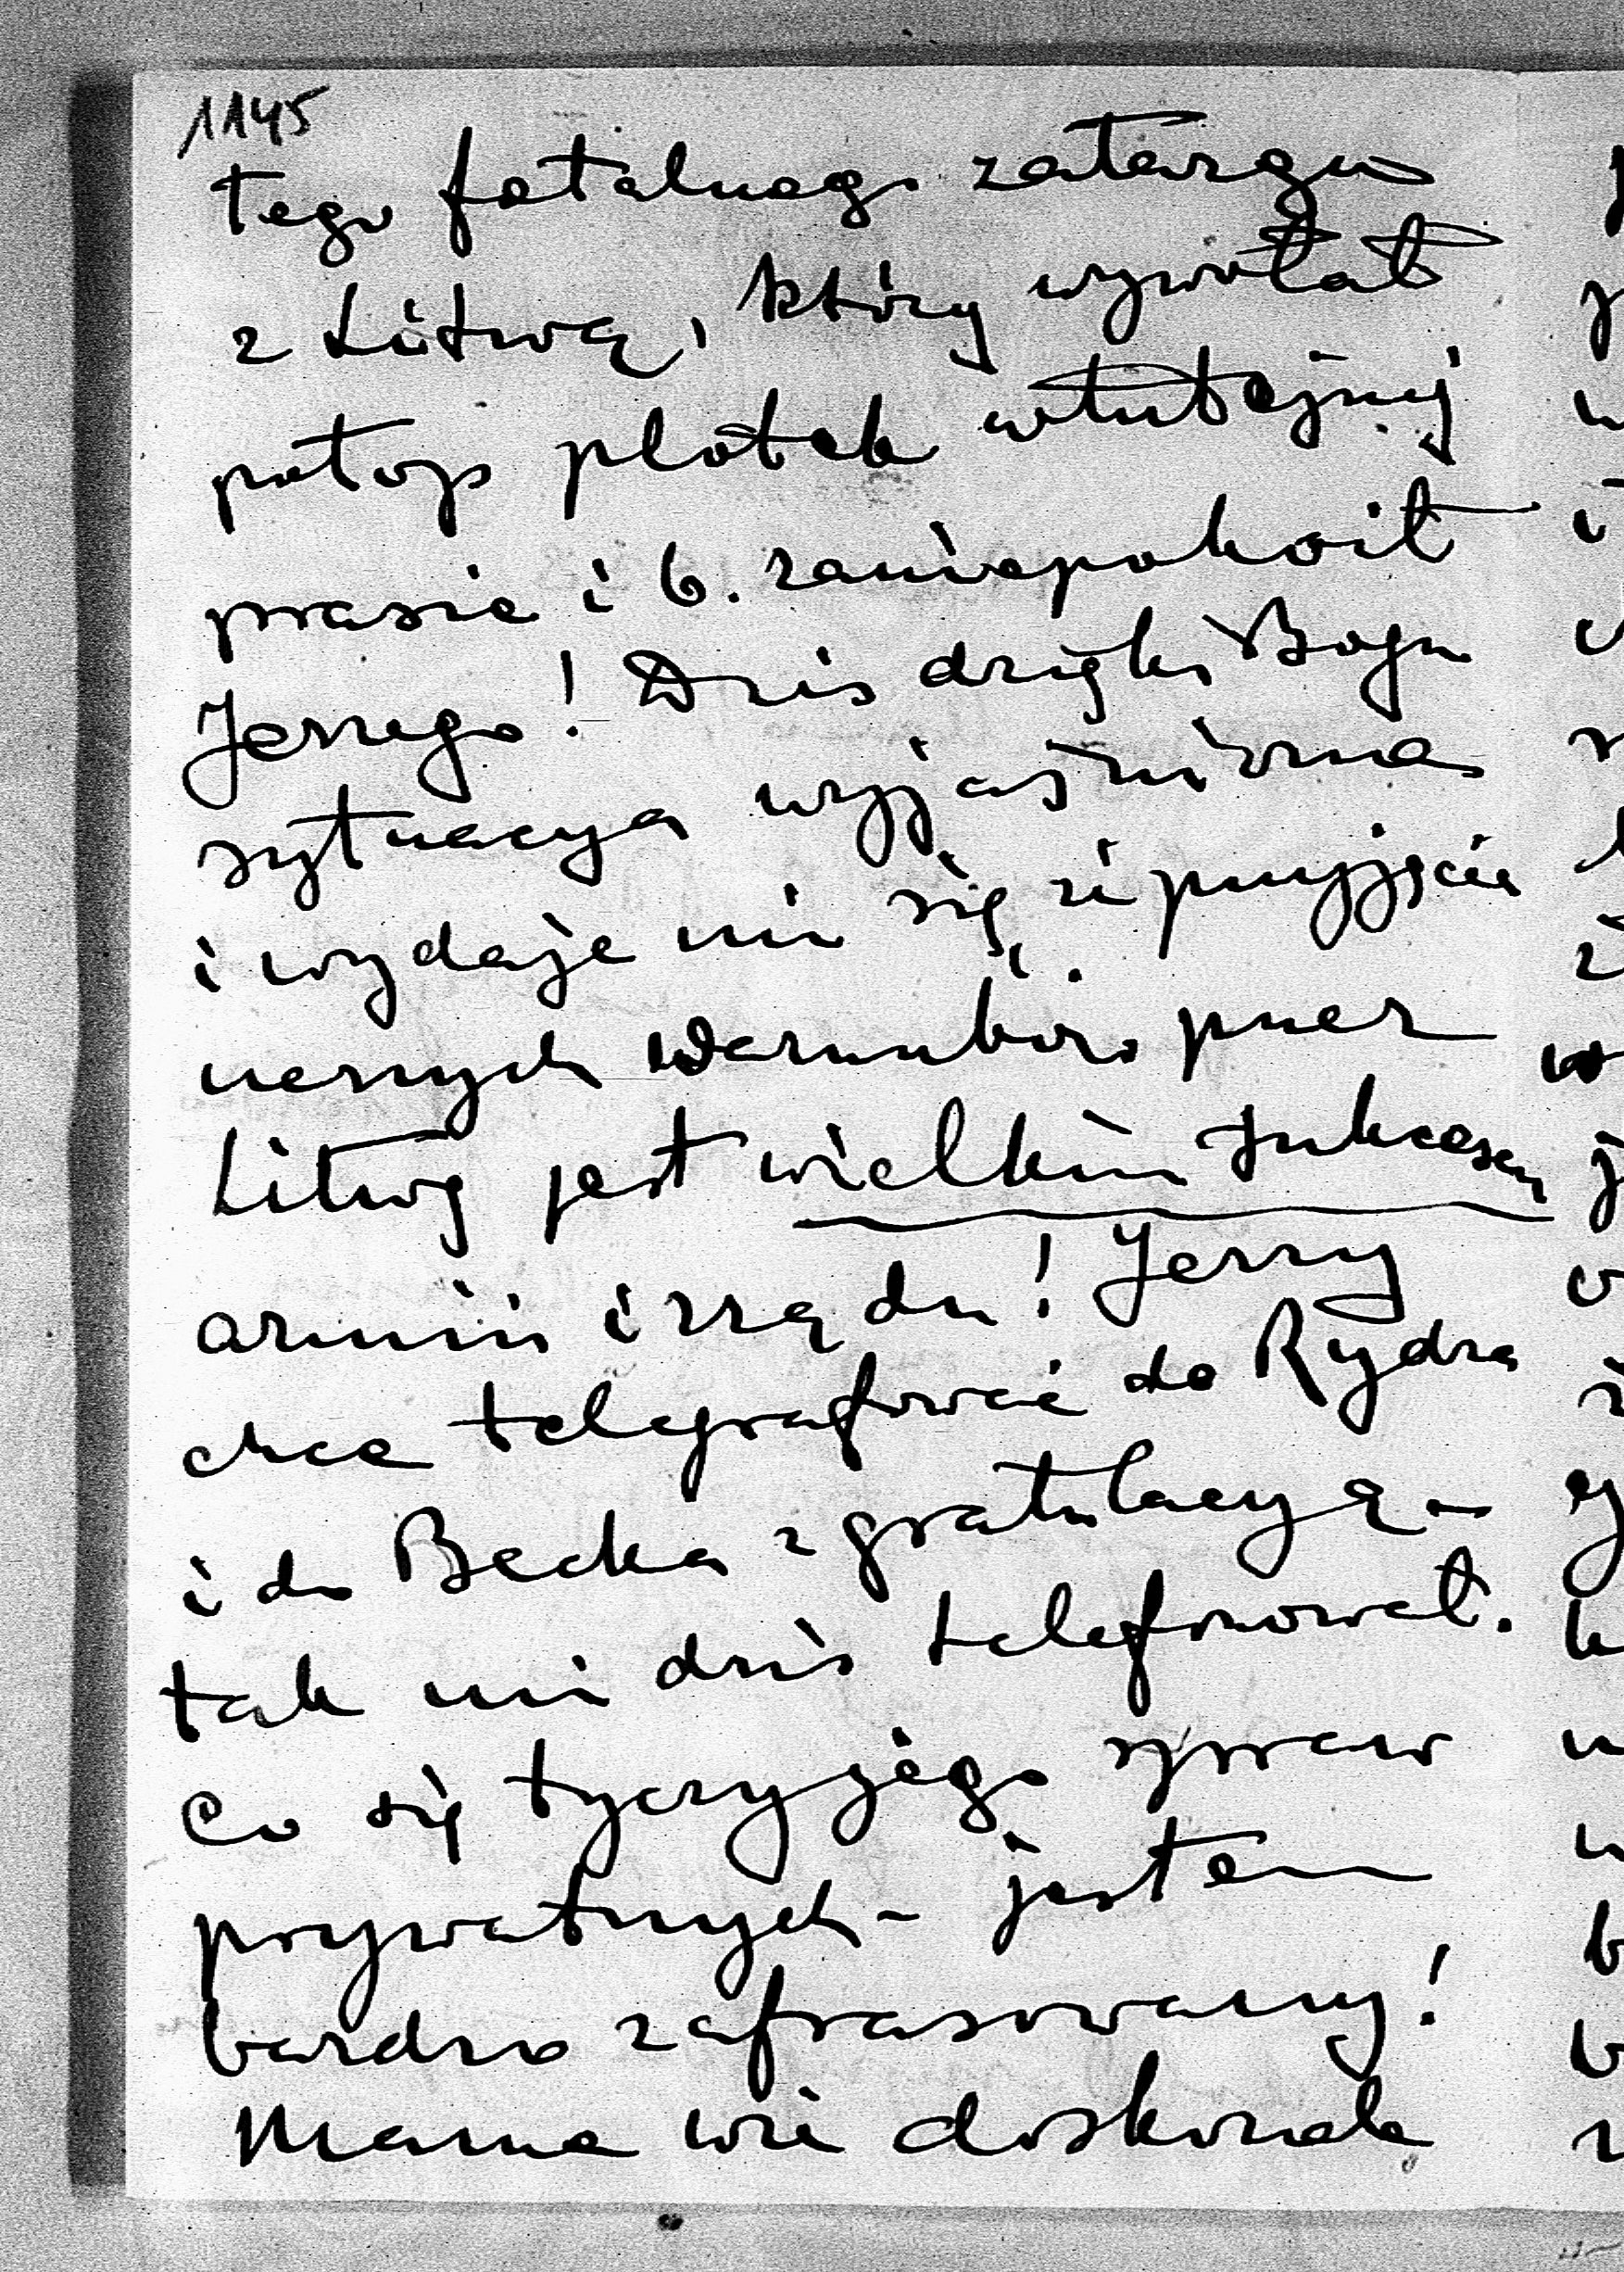 1145
tego fatalnego zatargu
z Litwą, który wywołał
potop plotek w tutejszej
prasie i b. zaniepokoił
Jerzego! Dziś dzięki Bogu
sytuacya wyjaśniona
i wydaje mi się że przyjęcie
naszych warunków przez
Litwę jest wielkim sukcesem
armii i rządu! Jerzy
chce telegrafować do Rydza
i do Becka z gratulacyą –
tak mi dziś telefonował.
Co się tyczy jego spraw
prywatnych – jestem
bardzo zafrasowany!
Mama wie doskonale